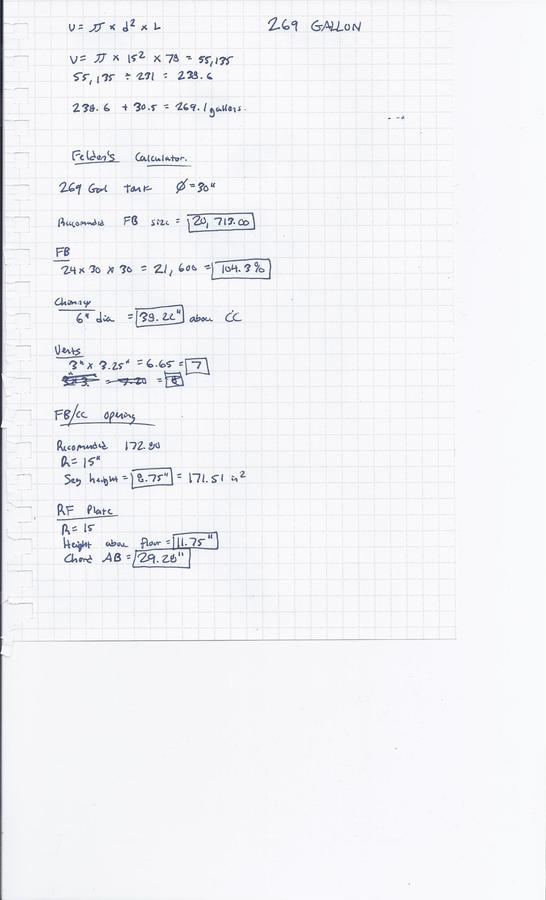 269 GALLON
V = π × d² × L
V = π × 15² × 78 = 55,135
55,135 ÷ 231 = 238.6
238.6 + 30.5 = 269.1 gallons.
Feldon's Calculator.
269 Gal tank Ø = 30"
Recommended FB size = 20,719.00
FB
24 × 30 × 30 = 21,600 = 104.3%
Chimney
6" dia = 39.22" above CC
Vents
3" × 3.25" = 6.65 = 7
FB/CC opening
Recommended 172.80
R = 15"
Seg height = 8.75" = 171.51 in²
RF Plate
R = 15
Height above floor = 11.75"
Chord AB = 29.28"